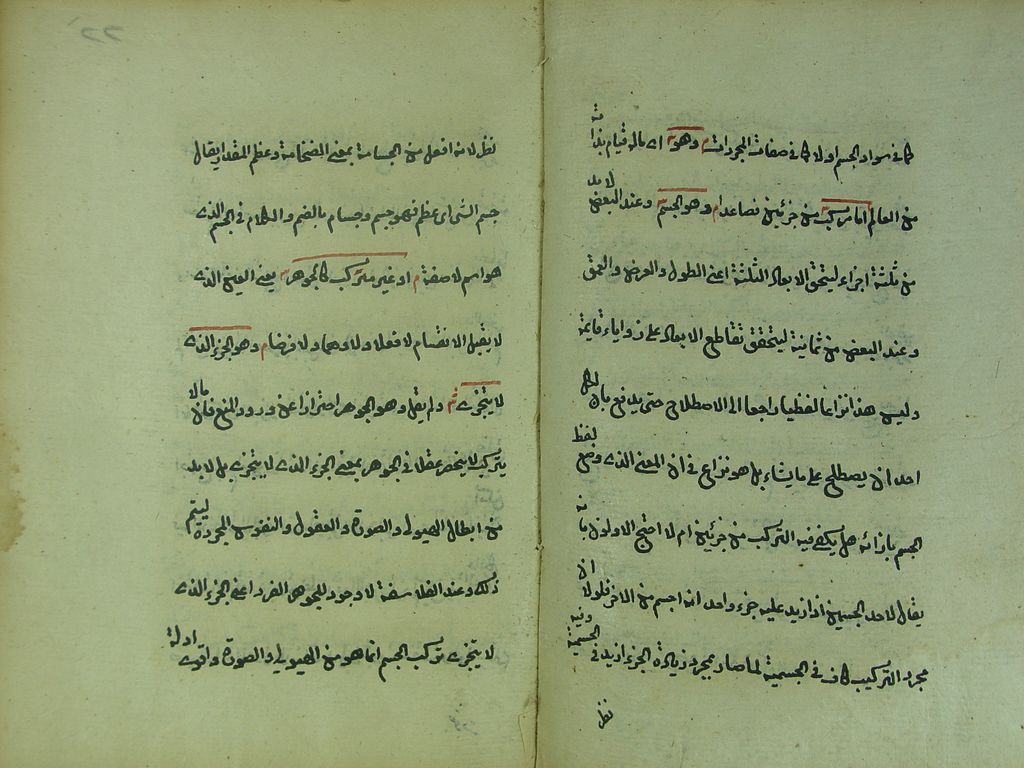 كما في سواد الجسم اولا كما في صفات المجردات وهو اي ماله قيام بذاته
من العالم اما مركب من جزئين فصاعدا وهو الجسم وعند البعض لا بد
من ثلثة اجزاء ليتحقق الابعاد الثلثة اعني الطول والعرض والعمق
وعند البعض من ثمانية ليتحقق تقاطع الابعاد على زوايا قايمة
وليس هذا نزاعا لفظيا راجعا الى الاصطلاح حتى يدفع بان لكل
احد ان يصطلح على ما يشاء بل هو نزاع في ان المعنى الذي وضع لفظ
الجسم بازائه هل يكفي فيه التركب من جزئين ام لا احتج الاولون بانه
يقال لاحد الجسمين اذا زيد عليه جزء واحد انه اجسم من الاخر فلولا ان
مجرد التركيب كاف في الجسمية لما صار بمجرد زيادة الجزء ازيد في الجسمية وفيه
نظر
نظر لانه افعل من الجسامة بمعنى الضخامة وعظم المقدار يقال
جسم الشئ اى عظم فهو جسيم وجسام بالضم والكلام في الجسم الذي
هو اسم لا صفة او غير مركب كالجوهر يعني العين الذي
لا يقبل الانقسام لا فعلا ولا وهما ولا فرضا وهو الجزء الذي
لا يتجزى ولم يقل وهو الجوهر احترازا عن ورود المنع فان ما لا
يتركب لا ينحصر عقلا في الجوهر بمعنى الجزء الذي لا يتجزى بل لا بد
من ابطال الهيولى والصورة والعقول والنفوس المجردة ليتم
ذلك وعند الفلاسفة لا وجود للجوهر الفرد اعني الجزء الذي
لا يتجزى وتركب الجسم انما هو من الهيولى والصورة واقوى ادلة